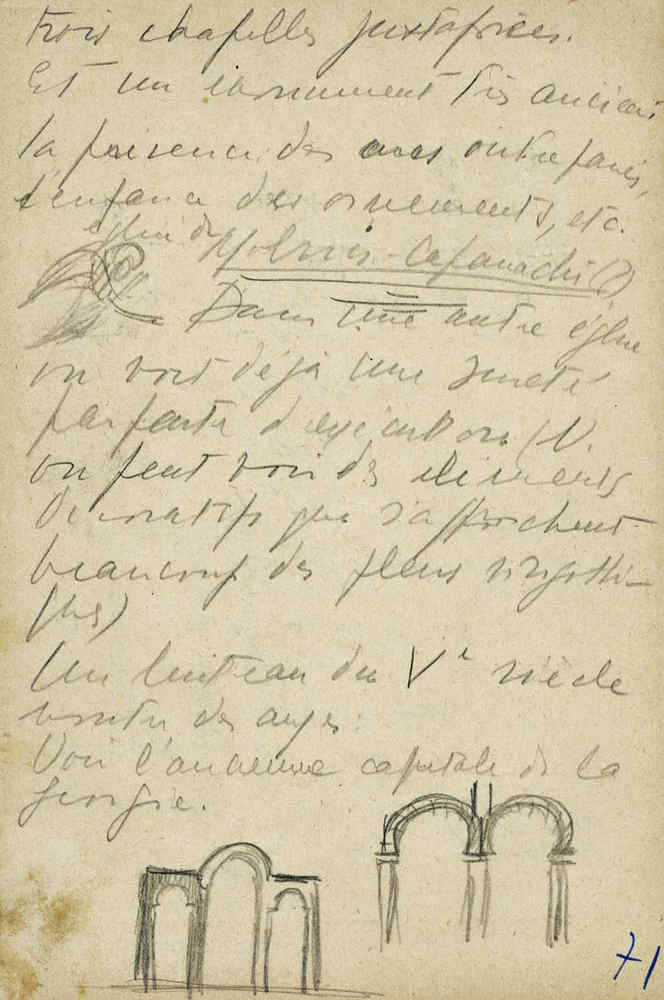 trois chapelles juxtaposées.
Est un monument très ancien
la présence des arcs outrepassés,
l'enfance des ornements, etc.
église de
Dans une autre église
on voit déjà une sureté
parfaite d'exécution (V.
on peut voir des éléments
décoratifs qui s'approchent
beaucoup des fleurs wisigothi-
ques)
Un linteau du Ve siècle
montre des anges:
Voir l'ancienne capitale de la
Georgie.
71